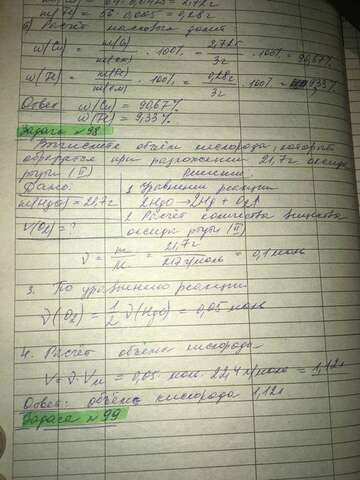 б) Расчёт массовых долей
w(Cu) = m(Cu) / m(см) · 100% = 2,72г / 3г · 100% = 90,67%
w(Fe) = m(Fe) / m(см) · 100% = 0,28г / 3г · 100% = 9,33%
Ответ w(Cu) = 90,67%
w(Fe) = 9,33%
Задача №98
Вычислите объём кислорода, который
образуется при разложении 21,7г оксида
ртути (II)
Дано: Решение:
m(HgO) = 21,7г 1. Уравнение реакции
2HgO → 2Hg + O2↑
V(O2) = ? 2. Расчёт количества вещества
оксида ртути (II)
ν = m / M = 21,7г / 217г/моль = 0,1 моль
3. По уравнению реакции
ν(O2) = 1/2 ν(HgO) = 0,05 моль
4. Расчёт объёма кислорода
V = ν · Vм = 0,05 мол · 22,4 л/моль = 1,12л
Ответ: объём кислорода 1,12л
Задача №99